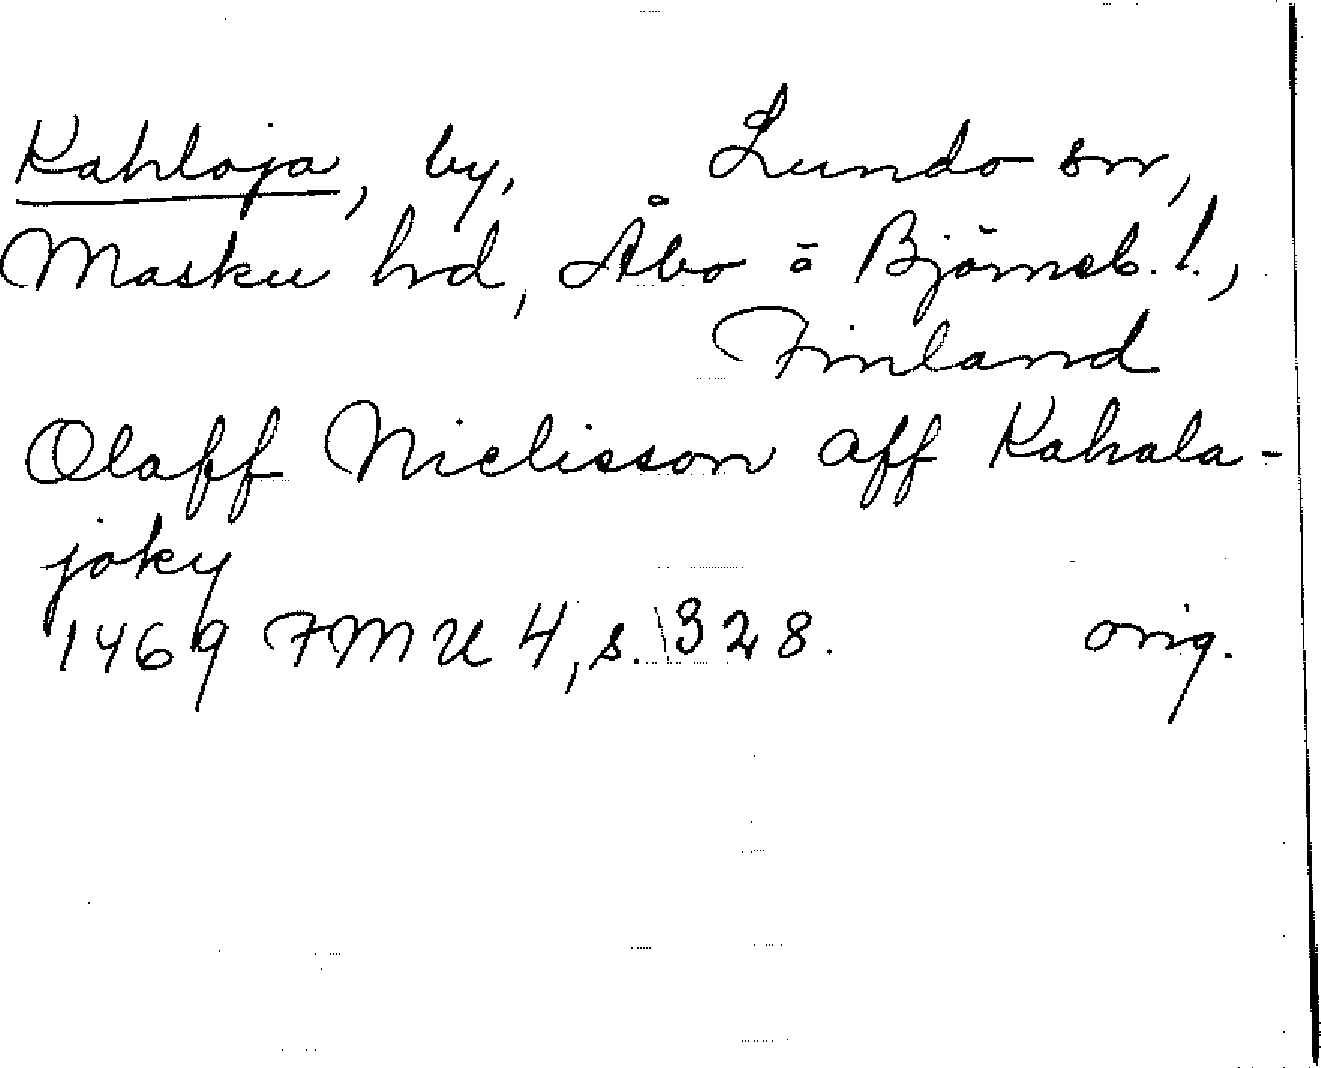 Kahloja, by, Lundo sn,
Masku hd, Åbo o Björneb. l.,
Finland
Olaff Nielisson aff Kahala-
joky
1469 FMU 4, s. 328. orig.